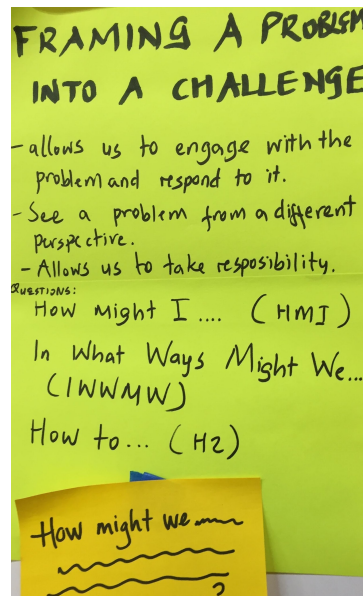 FRAMING A PROBLEM
INTO A CHALLENGE
- allows us to engage with the
problem and respond to it.
- See a problem from a different
perspective.
- Allows us to take resposibility.
QUESTIONS:
How might I.... (HMI)
In What Ways Might We...
(IWWMW)
How to... (H2)
How might we
?